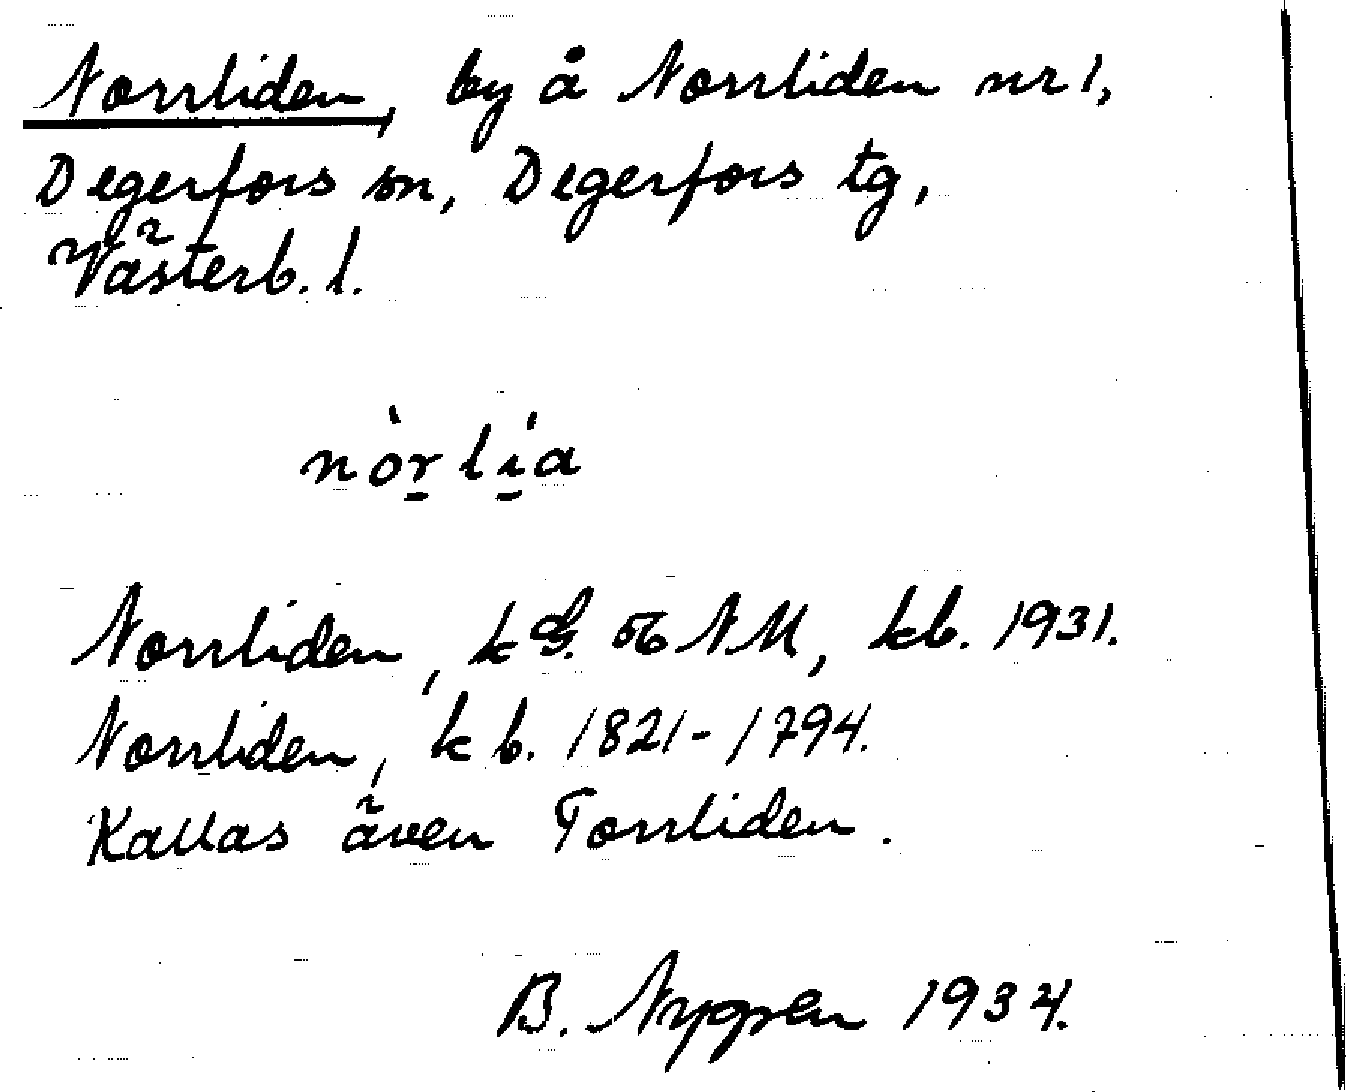 Norrliden, by å Norrliden nr 1,
Degerfors sn, Degerfors tg,
Västerb. l.
nòr̲ lí̲a
Norrliden, k G. 56 NM, kb. 1931.
Norrliden, kb. 1821-1794.
Kallas även Torrliden.
B. Nygren 1934.